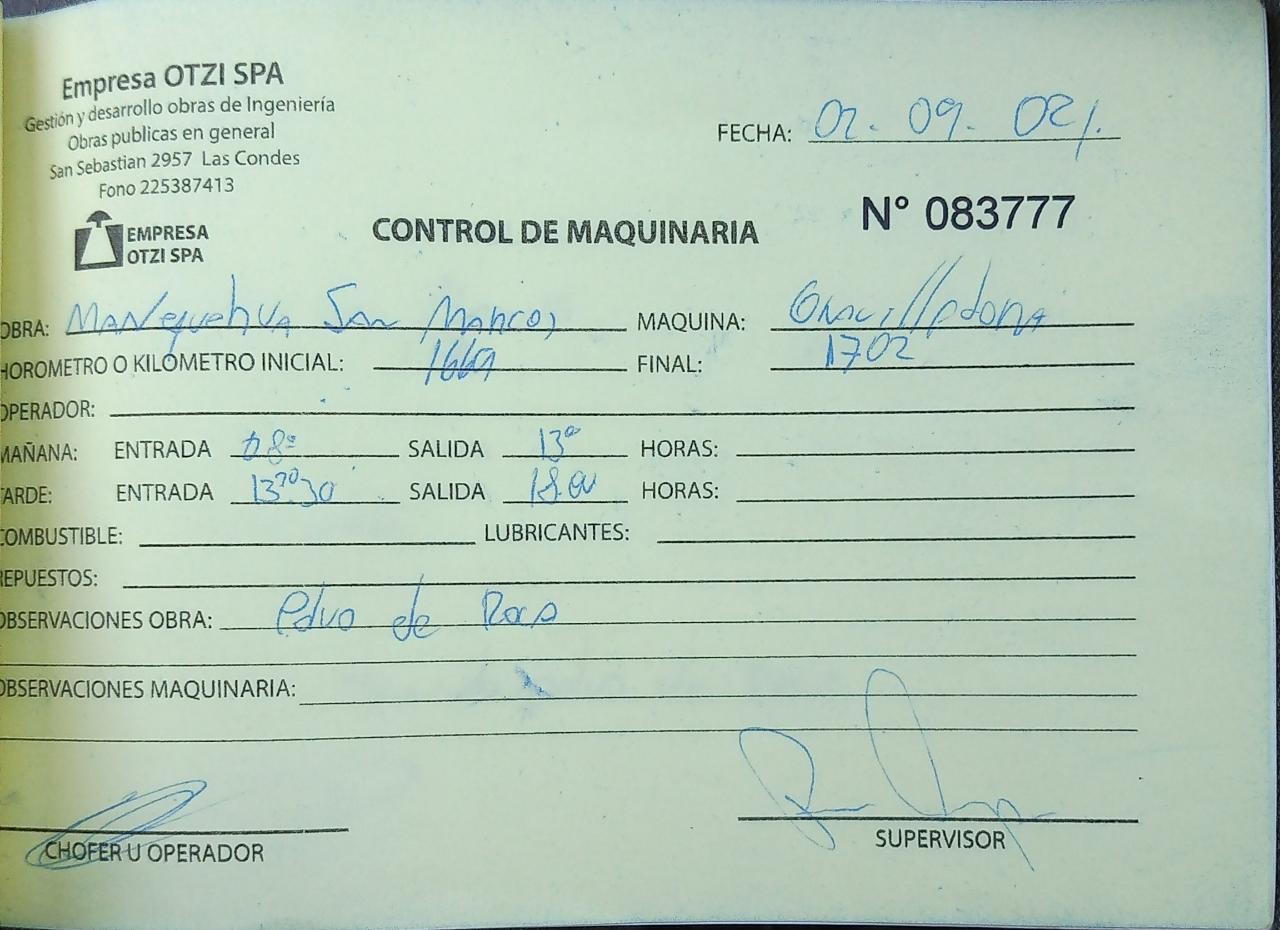 Empresa OTZI SPA
Gestión y desarrollo obras de Ingeniería
Obras publicas en general
San Sebastian 2957 Las Condes
Fono 225387413
EMPRESA
OTZI SPA
FECHA: 02. 09. 021.
CONTROL DE MAQUINARIA
N° 083777
OBRA: MANquehua San Marcos MAQUINA:
HOROMETRO O KILÓMETRO INICIAL: FINAL: 1702
OPERADOR:
MAÑANA: ENTRADA 08º SALIDA 13º HORAS:
TARDE: ENTRADA SALIDA 18.00 HORAS:
COMBUSTIBLE: LUBRICANTES:
REPUESTOS:
OBSERVACIONES OBRA: de Roca
OBSERVACIONES MAQUINARIA:
CHOFER U OPERADOR
SUPERVISOR